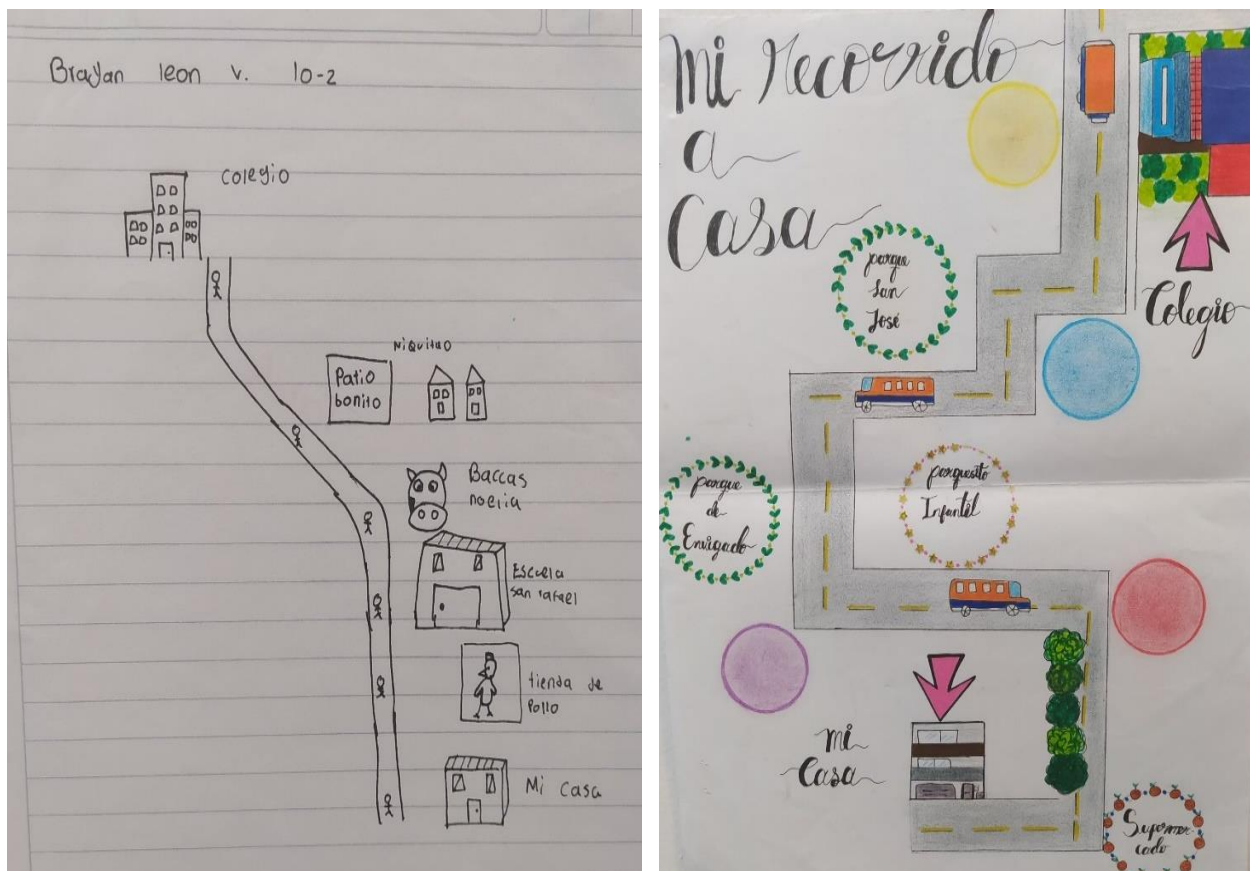 Brayan leon v. 10-2
colegio
Niquitao
Patio
bonito
Baccas
noelia
Escuela
san rafael
tienda de
Pollo
Mi casa
Mi Recorrido
a
Casa
parque
San
José
Colegio
parque
de
Envigado
parquesito
Infantil
mi
Casa
Supermer
cado